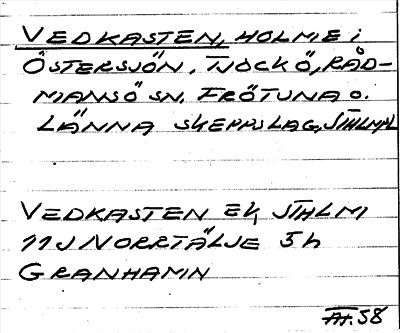 VEDKASTEN, HOLME i
ÖSTERSJÖN, TJOCKÖ, RÅD-
MANSÖ SN, FRÖTUNA O.
LÄNNA SKEPPSLAG, STHLM L
VEDKASTEN EK, STHLM
11J NORRTÄLJE 5h
GRANHAMN
58